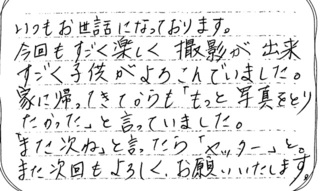 いつもお世話になっております。
今回もすごく楽しく撮影が出来
すごく子供がよろこんでいました。
家に帰ってきてからも「もっと写真をとり
たかった」と言っていました。
「また次ね」と言ったら「ヤッター」と。
また次回もよろしくお願いいたします。